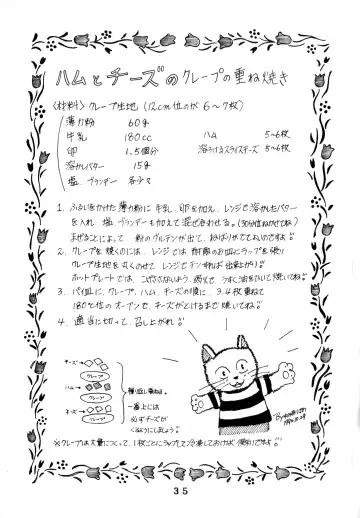 ハムとチーズのクレープの重ね焼き
〈材料〉クレープ生地 (12cm位のが 6〜7枚)
薄力粉 60g
牛乳 180cc
卵 1.5個分
溶かしバター 15g
塩、ブランデー 各少々
ハム 5〜6枚
溶けるスライスチーズ 5〜6枚
1. ふるいをかけた薄力粉に牛乳、卵を加え、レンジで溶かしたバター
を入れ、塩、ブランデーも加えて混ぜ合わせる。(30分位ねかせてね)
まぜることによって、粉のグルテンが出て、ねばりがでてよいのですよ!
2. クレープを焼くのには、レンジでは耐熱のお皿にラップを張り
クレープ生地を丸くのせて、レンジでチンすれば出来上がり!
ホットプレートでは、こげつかないよう、弱火で、うすく油をひいて焼いてね!
3. パイ皿に、クレープ、ハム、チーズの順に、3、4枚重ねて
180℃位のオーブンで、チーズがとけるまで焼いてね!
4. 適当に切って、召し上がれ!
チーズ→
クレープ
ハム→
クレープ
チーズ→
クレープ
繰り返し重ねる。
一番上には
必ずチーズが
くるようにしましょう!
※クレープは大量につくって、1枚ごとにラップして冷凍しておけば、便利ですよ!!
35